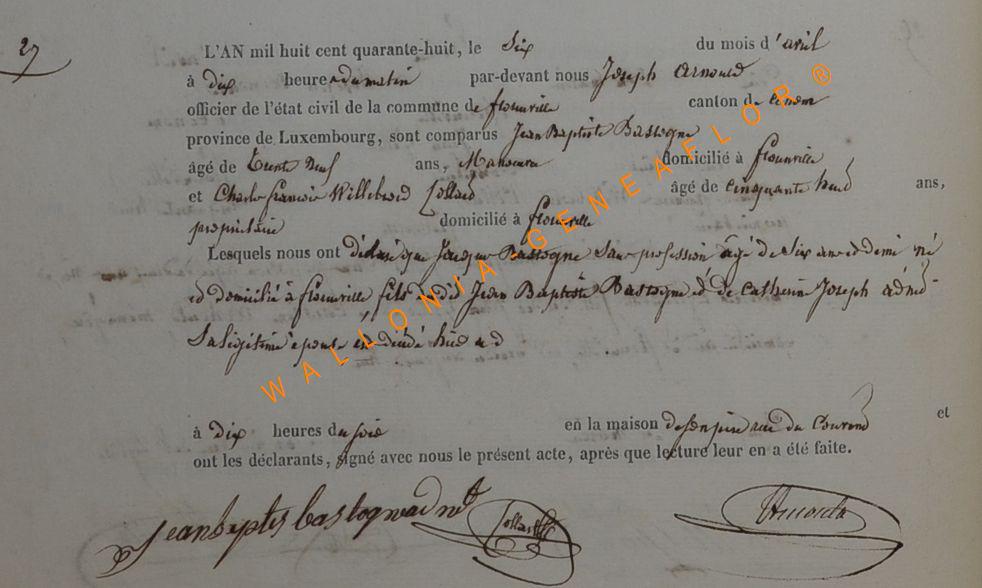 27
L'AN mil huit cent quarante-huit, le Six du mois d'avril
à dix heures du matin par-devant nous Joseph Arnould
officier de l'état civil de la commune de florenville canton de
province de Luxembourg, sont comparus Jean Baptiste Bastogne
âgé de trente neuf ans, Manoeuvre domicilié à florenville
et Charles françois Willebrord Collard âgé de cinquante ans,
propriétaire domicilié à florenville
Lesquels nous ont déclaré que Jacques Bastogne San profession âgé de Six ans et demi né
et domicilié à florenville, fils du dit Jean Baptiste Bastogne et de Catherine Joseph
Sa légitime épouse est décédé hier
à dix heures du soir en la maison de son père rue du et
ont les déclarants, signé avec nous le présent acte, après que lecture leur en a été faite.
jean baptis bastogne Collard
WALLONIA-GENEAFLOR®